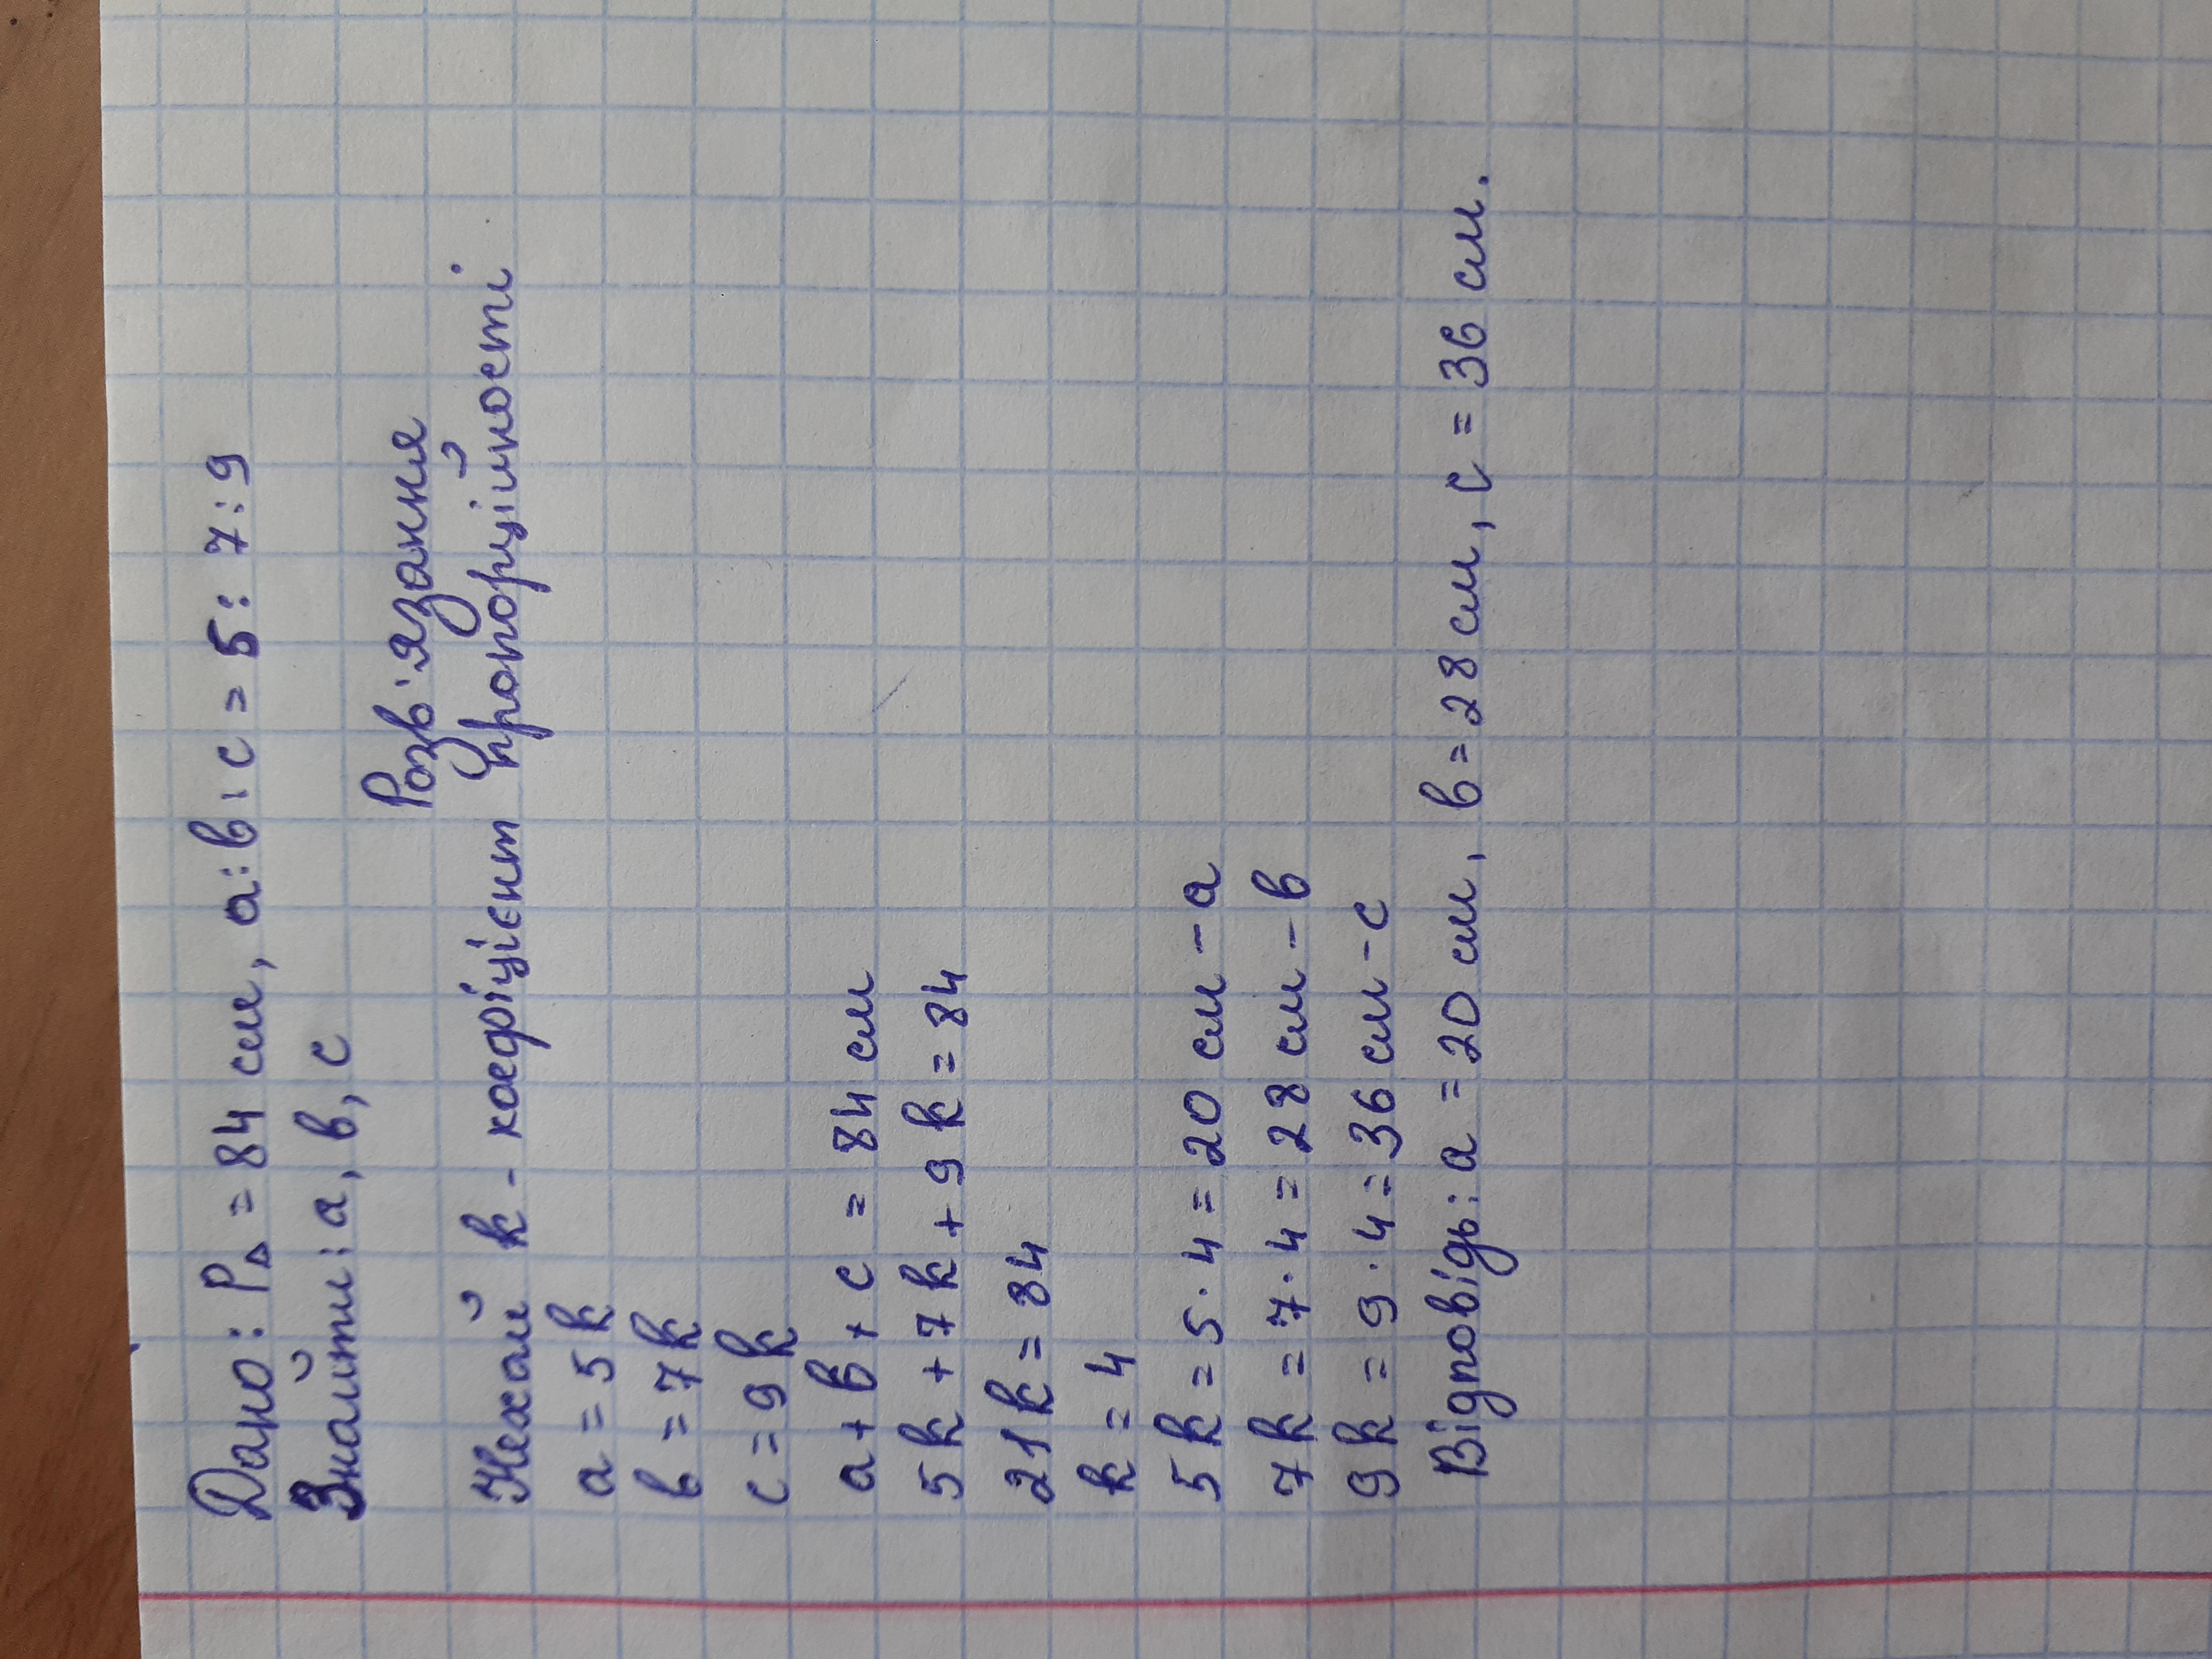 Дано: P∆ = 84 см, а:в:с = 5:7:9
Знайти: а, в, с
Розв'язання
Нехай k - коефіцієнт пропорційності
а = 5k
в = 7k
с = 9k
а + в + с = 84 см
5k + 7k + 9k = 84
21k = 84
k = 4
5k = 5·4 = 20 см - а
7k = 7·4 = 28 см - в
9k = 9·4 = 36 см - с
Відповідь: а = 20 см, в = 28 см, с = 36 см.